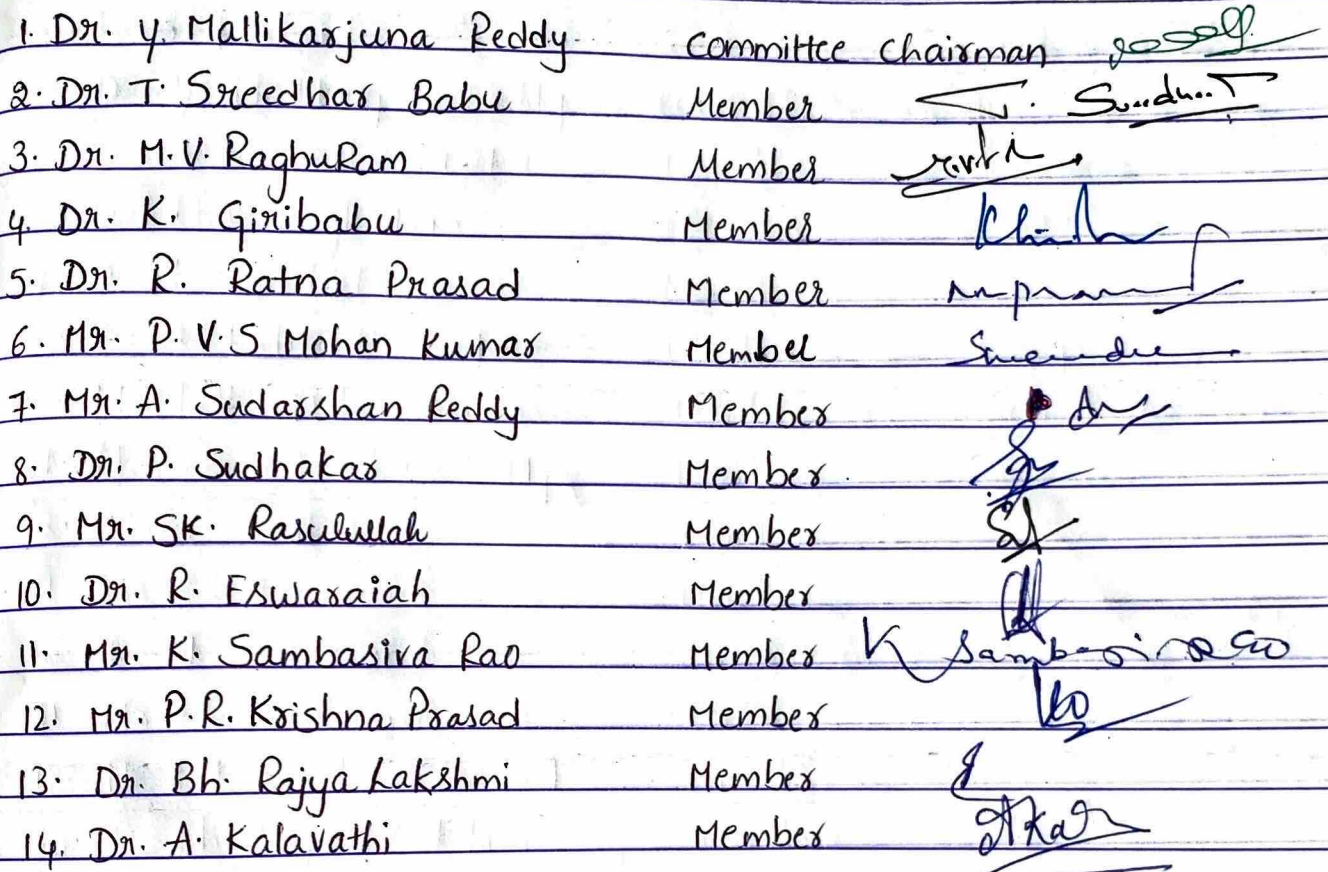 1. Dr. Y. Mallikarjuna Reddy Committee Chairman
2. Dr. T. Sreedhar Babu Member
3. Dr. M.V. RaghuRam Member
4. Dr. K. Giribabu Member
5. Dr. R. Ratna Prasad Member
6. Mr. P.V.S Mohan Kumar Member
7. Mr. A. Sudarshan Reddy Member
8. Dr. P. Sudhakar Member
9. Mr. SK. Rasulullah Member
10. Dr. R. Eswaraiah Member
11. Mr. K. Sambasiva Rao Member K Sambasiva Rao
12. Mr. P.R. Krishna Prasad Member
13. Dr. Bh. Rajya Lakshmi Member
14. Dr. A. Kalavathi Member